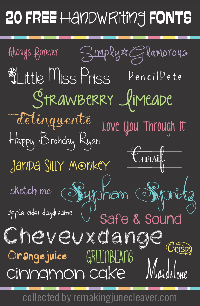 20 FREE Handwriting FONTS
Always Forever
Simply Glamorous
Little Miss Priss
Pencil Pete
STRAWBERRY LIMEADE
delinquente
Love You Through It
Happy Birthday Ryan
Janda Silly Monkey
sketch me
apple cider day
Safe & Sound
Cheveuxdange
Crispy
Orange juice
GREENBEANS
cinnamon cake
Madeline
collected by remakingjunecleaver.com